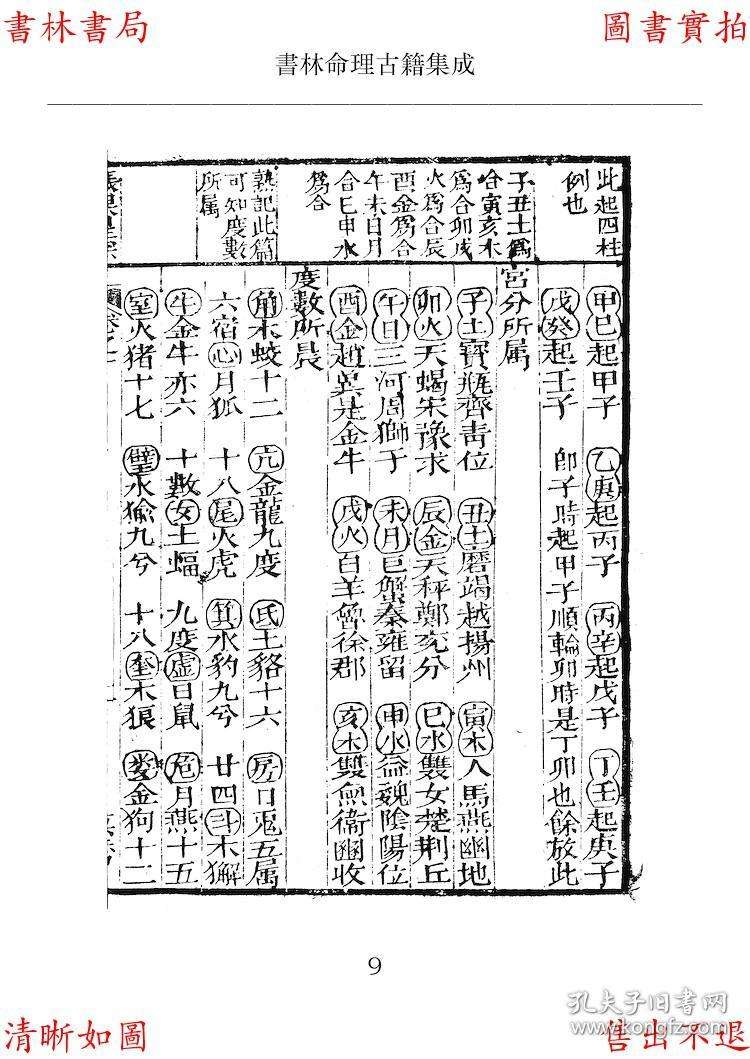 書林書局
圖書實拍
書林命理古籍集成
此起四柱
例也
子丑土爲
合寅亥木
爲合卯戌
火爲合辰
酉金爲合
午未日月
合巳申水
爲合
熟記此篇
可知度數
所属
甲巳起甲子 乙庚起丙子 丙辛起戊子 丁壬起庚子
戊癸起壬子 即子時起甲子順輪卯時是丁卯也餘放此
宮分所属
子土寶瓶齊青位 丑土磨竭越揚州 寅木人馬燕幽地
卯火天蝎宋豫求 辰金天秤鄭兗分 巳水雙女楚荆丘
午日三河周獅子 未月巨蟹秦雍留 申水益魏陰陽位
酉金趙冀是金牛 戌火白羊魯徐郡 亥木雙魚衞幽收
度數所
角木蛟十二 亢金龍九度 氐土貉十六 房日兎五属
六宿心月狐 十八尾火虎 箕水豹九兮 廿四斗木獬
牛金牛亦六 十數女土蝠 九度虚日鼠 危月燕十五
室火猪十七 壁水㺄九兮 十八奎木狼 婁金狗十二
9
清晰如圖
售出不退
孔夫子旧書网
www.kongfz.com